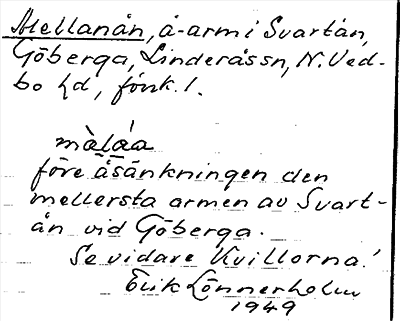 Mellanån, å-arm i Svartån,
Göberga, Linderås sn, N. Ved-
bo hd, fönk. 1.
màláa
före åsänkningen den
mellersta armen av Svart-
ån vid Göberga.
Se vidare Kvillorna!
Erik Lönnerholm
1949